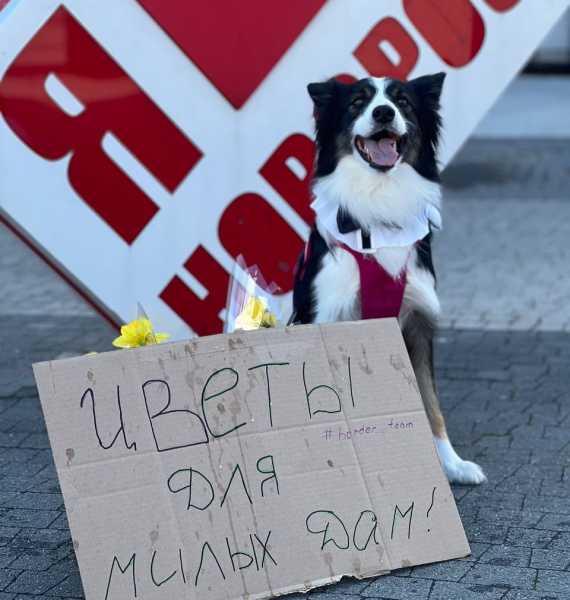 Я
НОВОРОС
Цветы
#border_team
для
милых дам!